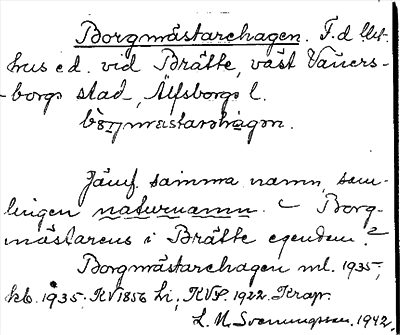 Borgmästarehagen. F.d. Ut-
hus e.d. vid Brätte, väst Väners-
borgs stad, Älfsborgs l.
Jämf. samma namn, sam-
lingen naturnamn. – Borg-
mästarens i Brätte egendom?
Borgmästarehagen ml. 1935,
hkb. 1935. KV 1856 Li, KVP. 1922. Krapr.
L. M. Svenungsson. 1942.